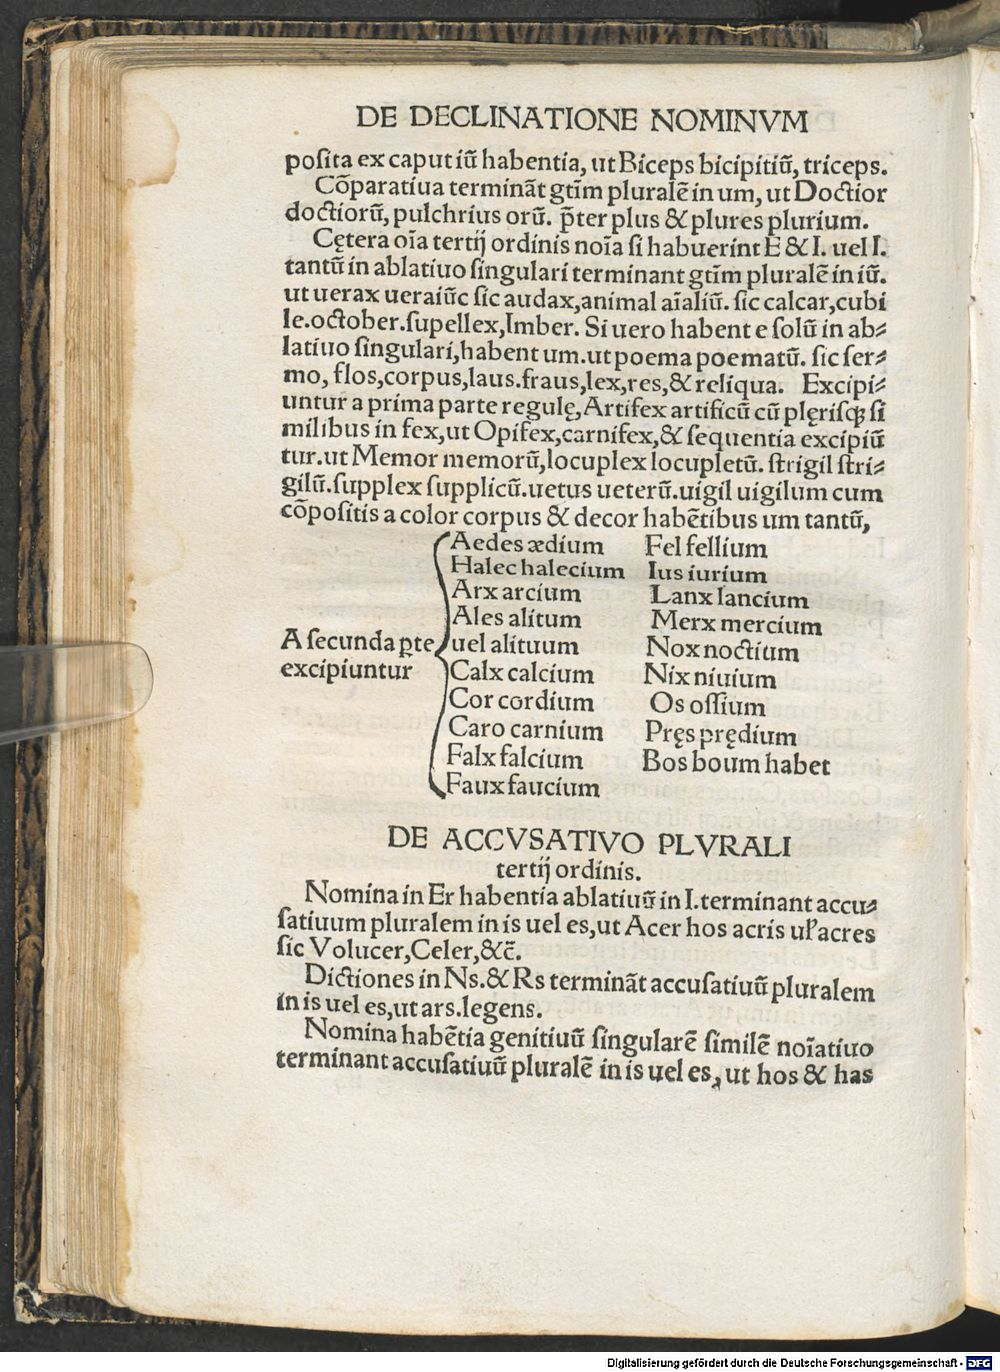 DE DECLINATIONE NOMINVM
posita ex caput iũ habentia, ut Biceps bicipitiũ, triceps.
Cõparatiua terminãt gtĩm pluralẽ in um, ut Doctior
doctiorũ, pulchrius orũ. p̃ter plus & plures plurium.
Cętera oĩa tertij ordinis noĩa si habuerint E & I. uel I.
tantũ in ablatiuo singulari terminant gtĩm pluralẽ in iũ.
ut uerax ueraiũc sic audax, animal aĩaliũ. sic calcar, cubi
le. october. supellex, Imber. Si uero habent e solũ in ab⸗
latiuo singulari, habent um. ut poema poematũ. sic ser⸗
mo, flos, corpus, laus. fraus, lex, res, & reliqua. Excipi⸗
untur a prima parte regulę, Artifex artificũ cũ plęrisqꝫ si
milibus in fex, ut Opifex, carnifex, & sequentia excipiũ
tur. ut Memor memorũ, locuplex locupletũ. strigil stri⸗
gilũ. supplex supplicũ. uetus ueterũ. uigil uigilum cum
cõpositis a color corpus & decor habẽtibus um tantũ,
A secunda ꝑte
excipiuntur
Aedes ædium
Halec halecium
Arx arcium
Ales alitum
uel alituum
Calx calcium
Cor cordium
Caro carnium
Falx falcium
Faux faucium
Fel fellium
Ius iurium
Lanx lancium
Merx mercium
Nox noctium
Nix niuium
Os ossium
Pręs prędium
Bos boum habet
DE ACCVSATIVO PLVRALI
tertij ordinis.
Nomina in Er habentia ablatiuũ in I. terminant accu⸗
satiuum pluralem in is uel es, ut Acer hos acris ul̛ acres
sic Volucer, Celer, &c̃.
Dictiones in Ns. & Rs terminãt accusatiuũ pluralem
in is uel es, ut ars. legens.
Nomina habẽtia genitiuũ singularẽ similẽ noĩatiuo
terminant accusatiuũ pluralẽ in is uel es, ut hos & has
Digitalisierung gefördert durch die Deutsche Forschungsgemeinschaft - DFG